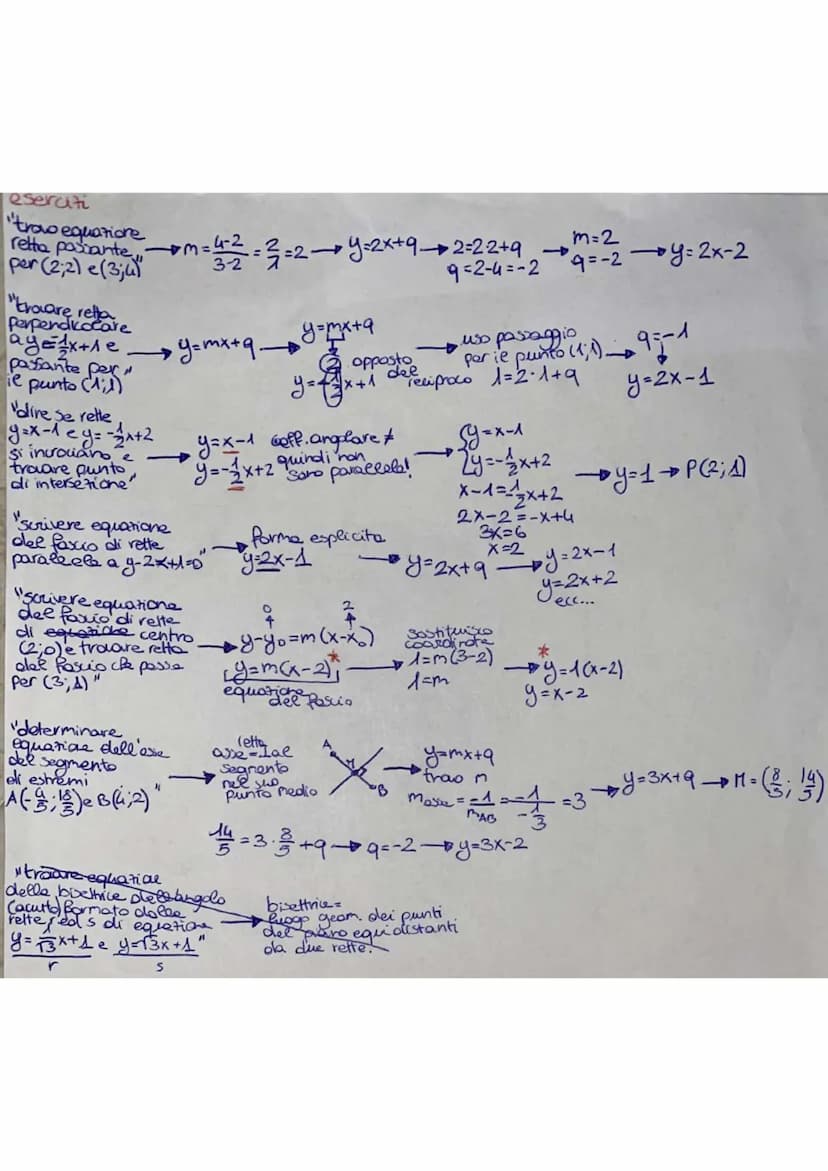 esercizi
"trovo equazione
retta passante
per (2;2) e (3;4)" → m = 4-2/3-2 = 2/1 = 2 → y=2x+q → 2=2·2+q → m=2 → y=2x-2
q=2-4=-2 q=-2
"trovare retta
perpendicolare
a y=-1/2x+1 e
passante per "
il punto (1;1) → y=mx+q → y=mx+q
2 opposto
del
reciproco
y=-1/2x+1
→ uso passaggio
per il punto (1;1) → q=-1
1=2·1+q
y=2x-1
"dire se rette
y=x-1 e y=-1/2x+2
si incrociano e
trovare punto
di intersezione" → y=x-1 coeff. angolare ≠
y=-1/2x+2 quindi non
sono parallele!
→ { y=x-1
y=-1/2x+2
x-1=-1/2x+2
2x-2=-x+4
3x=6
x=2
→ y=1 → P(2;1)
"scrivere equazione
del fascio di rette
parallela a y-2x+1=0" → forma esplicita
y=2x-1 → y=2x+q → y=2x-1
y=2x+2
ecc...
"scrivere equazione
del fascio di rette
di equazione centro
(2;0) e trovare retta
del fascio che passa
per (3;1)"
0 2
→ y-y₀=m(x-x₀)
y=m(x-2)*
equazione
del fascio
→ sostituisco
coordinate
1=m(3-2)
1=m
→ *
y=1(x-2)
y=x-2
"determinare
equazione dell'asse
del segmento
di estremi
A(-4/5;18/5) e B(4;2)" →
retta
asse=⊥ al
segmento
nel suo
punto medio
A
M
B
→ y=mx+q
trovo m
m asse = -1/mAB = -1/-1/3 = 3 → y=3x+q → M=(8/5; 14/5)
14/5 = 3·8/5+q → q=-2 → y=3x-2
"trovare equazione
della bisettrice dell'angolo
(acuto) formato dalle
rette r ed s di equazione
y=1/√3x+1 e y=√3x+1"
r s
→ bisettrice=
luogo geom. dei punti
del piano equidistanti
da due rette.